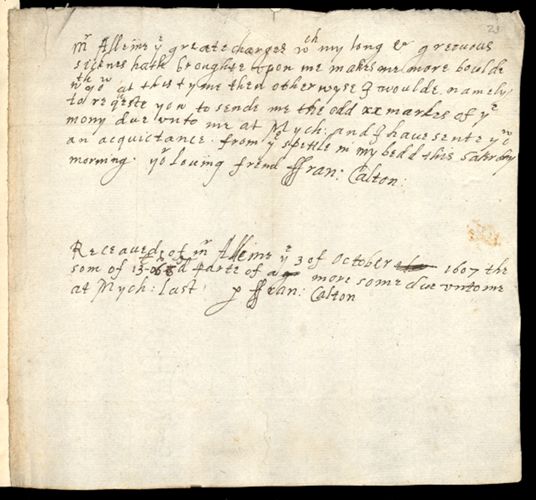 23
Mr Alleine ye greate charges wch my long & greuous
sicknes hath broughte vpon me makes me more boulde
wth yow at this tyme then otherwyse I woulde. namely
to requeste yow to sende me the odd xx markes of ye
mony due vnto me at Mych: and I haue sente yow
an acquictance. from ye spittle in my bedd this Saterday
morning. yor Loving frend ffran: Calton:
Receaued of mr Alleine ye 3 of October 1607 the
som of 13-06-8d parte of a more some due vnto me
at Mych: last: p ffran: Calton